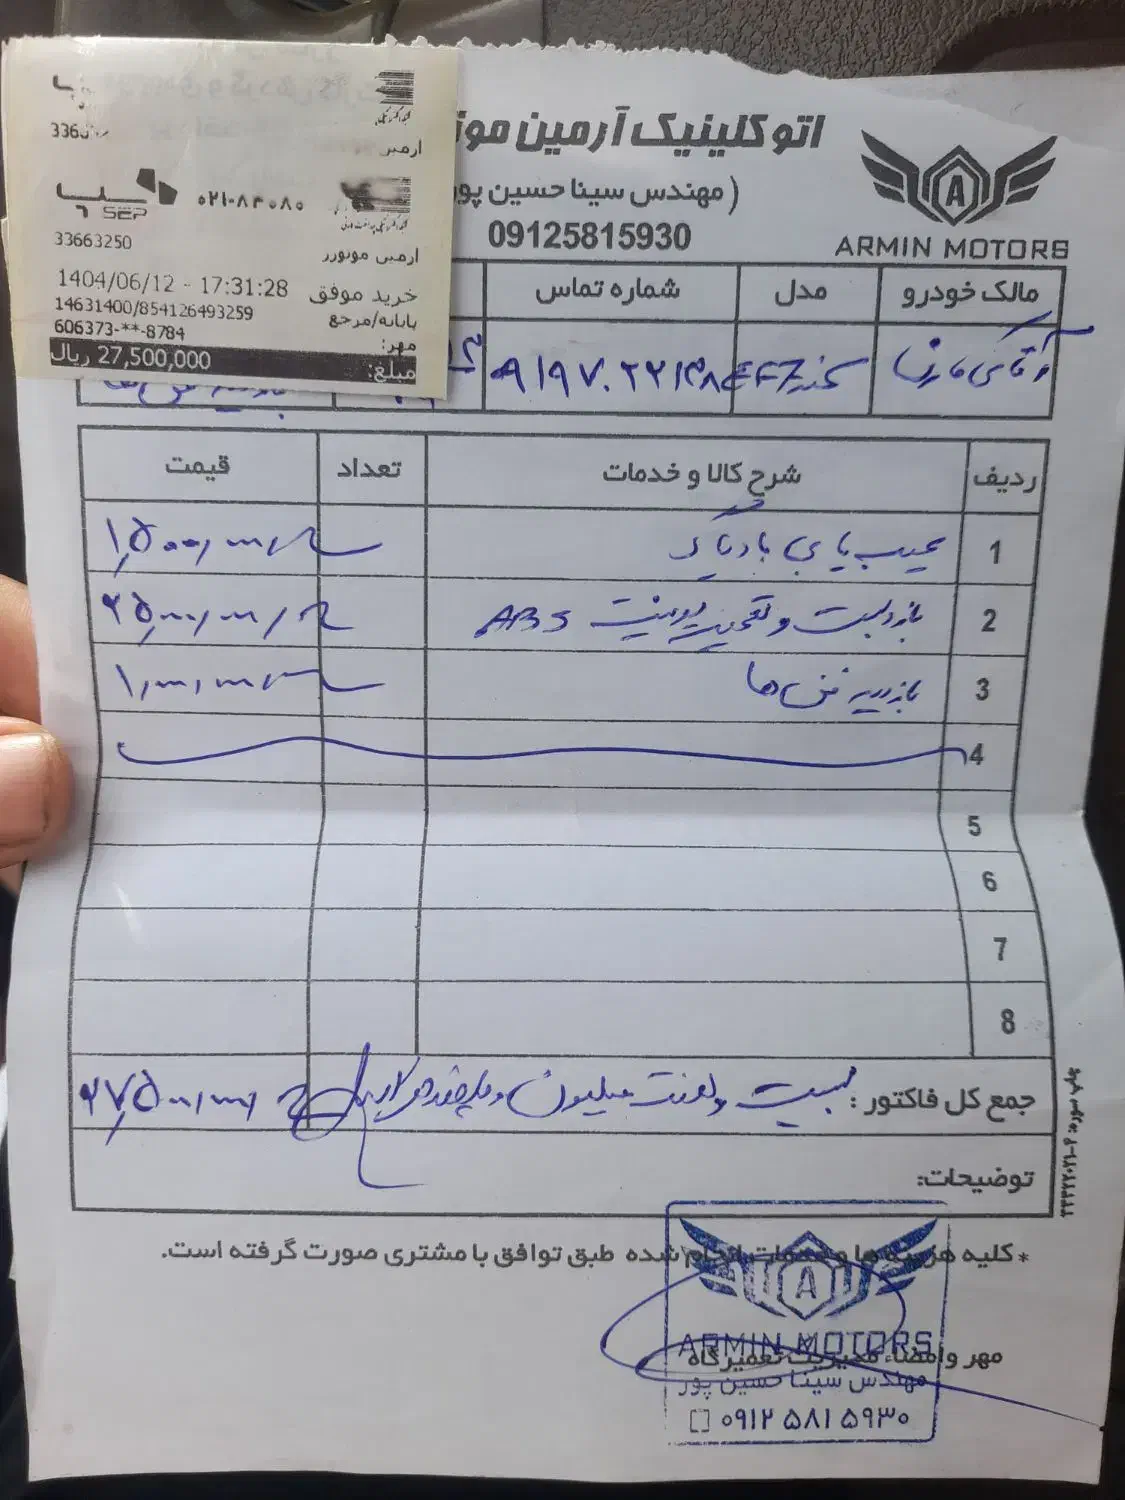 اتو کلینیک آرمین موتو
(مهندس سینا حسین پور
09125815930
A
ARMIN MOTORS
ارمین
سپ SEP
۰۲۱-۸۴۰۸۰
33663250
ارمین موتورز
1404/06/12 - 17:31:28
خرید موفق
14631400/854126493259
پایانه/مرجع
606373-**-8784
مهر:
مبلغ: 27,500,000 ریال
مالک خودرو
مدل
شماره تماس
EF7
۰۹۱۹۷۰۲۲۱۳۸
ردیف
شرح کالا و خدمات
تعداد
قیمت
1 عیب یابی با دیاگ ۱,۵۰۰,۰۰۰
2 باز و بست و تعمیر یونیت ABS ۲۵,۰۰۰,۰۰۰
3 بازدید فنی ها ۱,۰۰۰,۰۰۰
4
5
6
7
8
جمع کل فاکتور: بیست و هفت میلیون و پانصد هزار ریال ۲۷,۵۰۰,۰۰۰
توضیحات:
* کلیه هزینه ها و خدمات انجام شده طبق توافق با مشتری صورت گرفته است.
A
ARMIN MOTORS
مهر و امضاء مدیریت تعمیرگاه
مهندس سینا حسین پور
۰۹۱۲ ۵۸۱ ۵۹۳۰